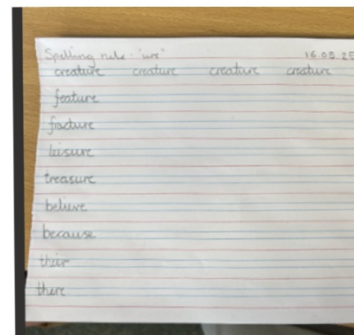 Spelling rule - 'ure' 16.05.25
creature creature creature creature
feature
fracture
leisure
treasure
believe
because
their
there